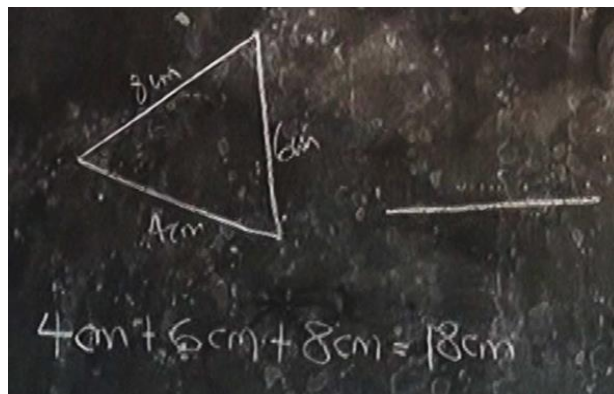 8cm
6cm
4cm
4cm + 6cm + 8cm = 18cm